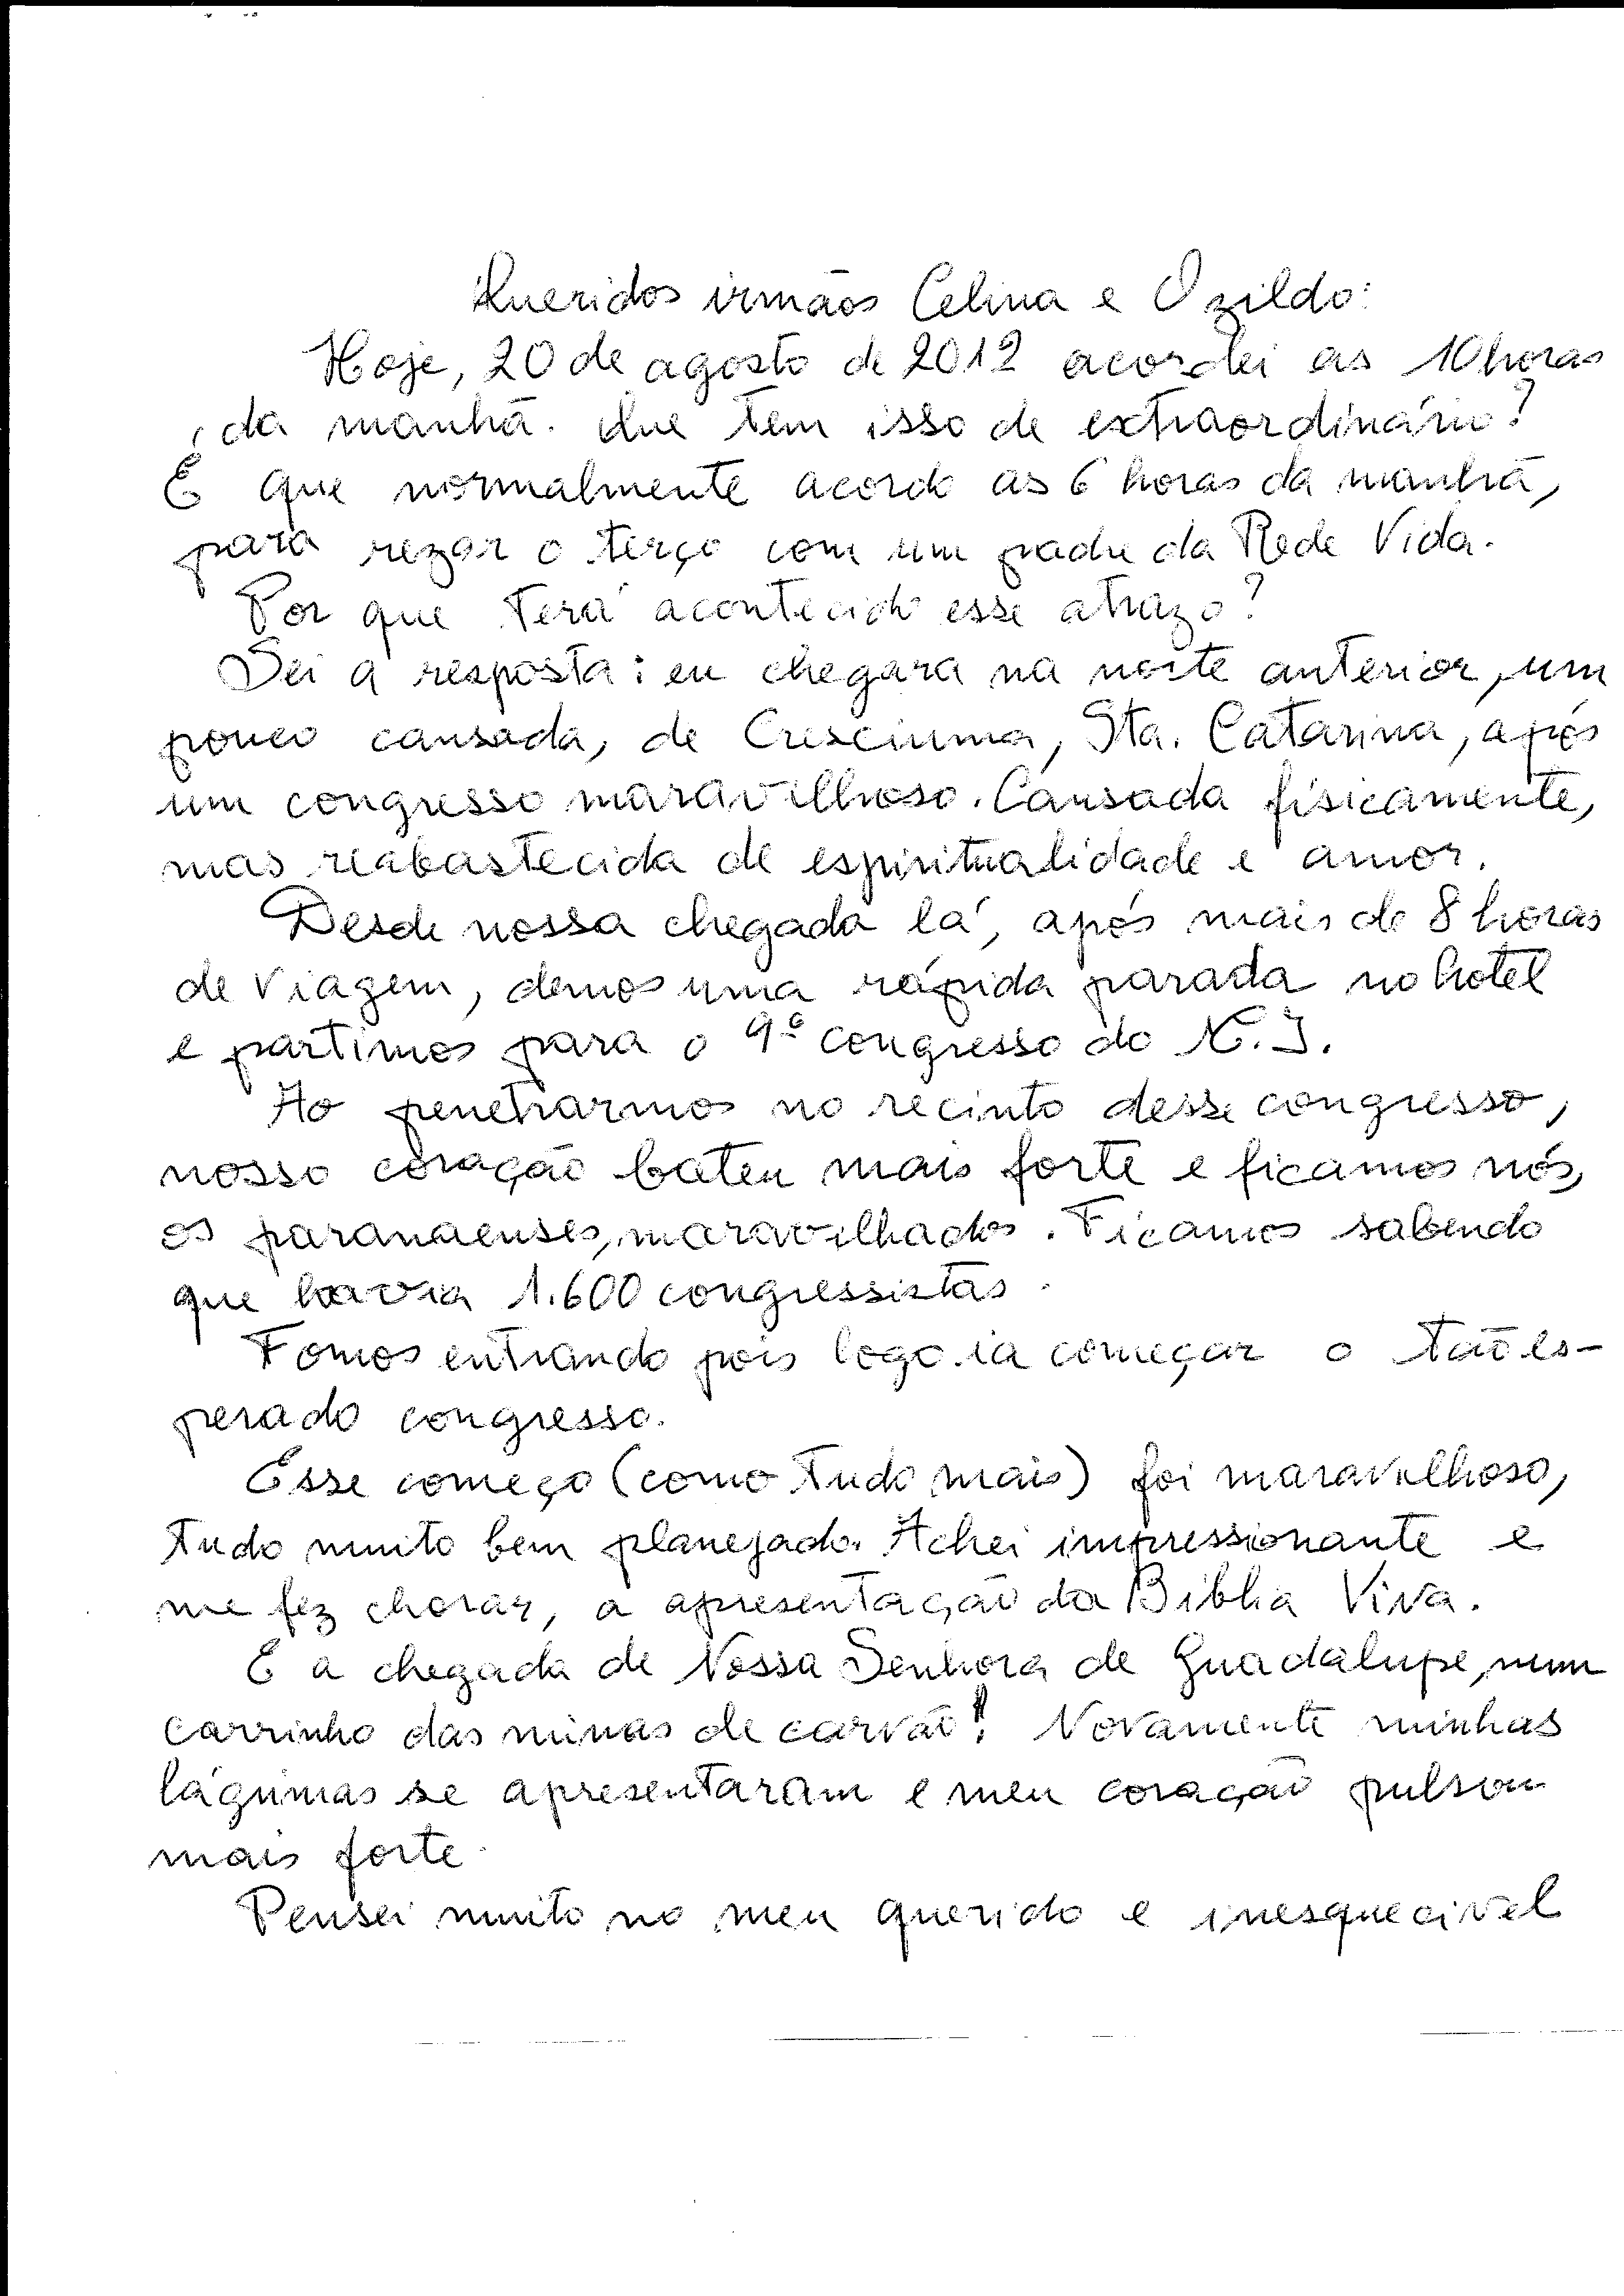 Queridos irmãos Celina e Ozildo:
Hoje, 20 de agosto de 2012 acordei as 10 horas
da manhã. Que tem isso de extraordinário?
É que normalmente acordo as 6 horas da manhã,
para rezar o terço com um padre da Rede Vida.
Por que terá acontecido esse atrazo?
Sei a resposta: eu chegara na noite anterior, um
pouco cansada, de Cresciuma, Sta. Catarina, após
um congresso maravilhoso. Cansada fisicamente,
mas reabastecida de espiritualidade e amor.
Desde nossa chegada lá, após mais de 8 horas
de viagem, demos uma rápida parada no hotel
e partimos para o 9º congresso do N.I.
Ao penetrarmos no recinto desse congresso,
nosso coração bateu mais forte e ficamos nós,
os paranaenses, maravilhados. Ficamos sabendo
que havia 1.600 congressistas.
Fomos entrando pois logo ia começar o tão es-
perado congresso.
Esse começo (como tudo mais) foi maravilhoso,
tudo muito bem planejado. Achei impressionante e
me fez chorar, a apresentação da Bíblia Viva.
E a chegada de Nossa Senhora de Guadalupe, num
carrinho das minas de carvão! Novamente minhas
lágrimas se apresentaram e meu coração pulsou
mais forte.
Pensei muito no meu querido e inesquecivel